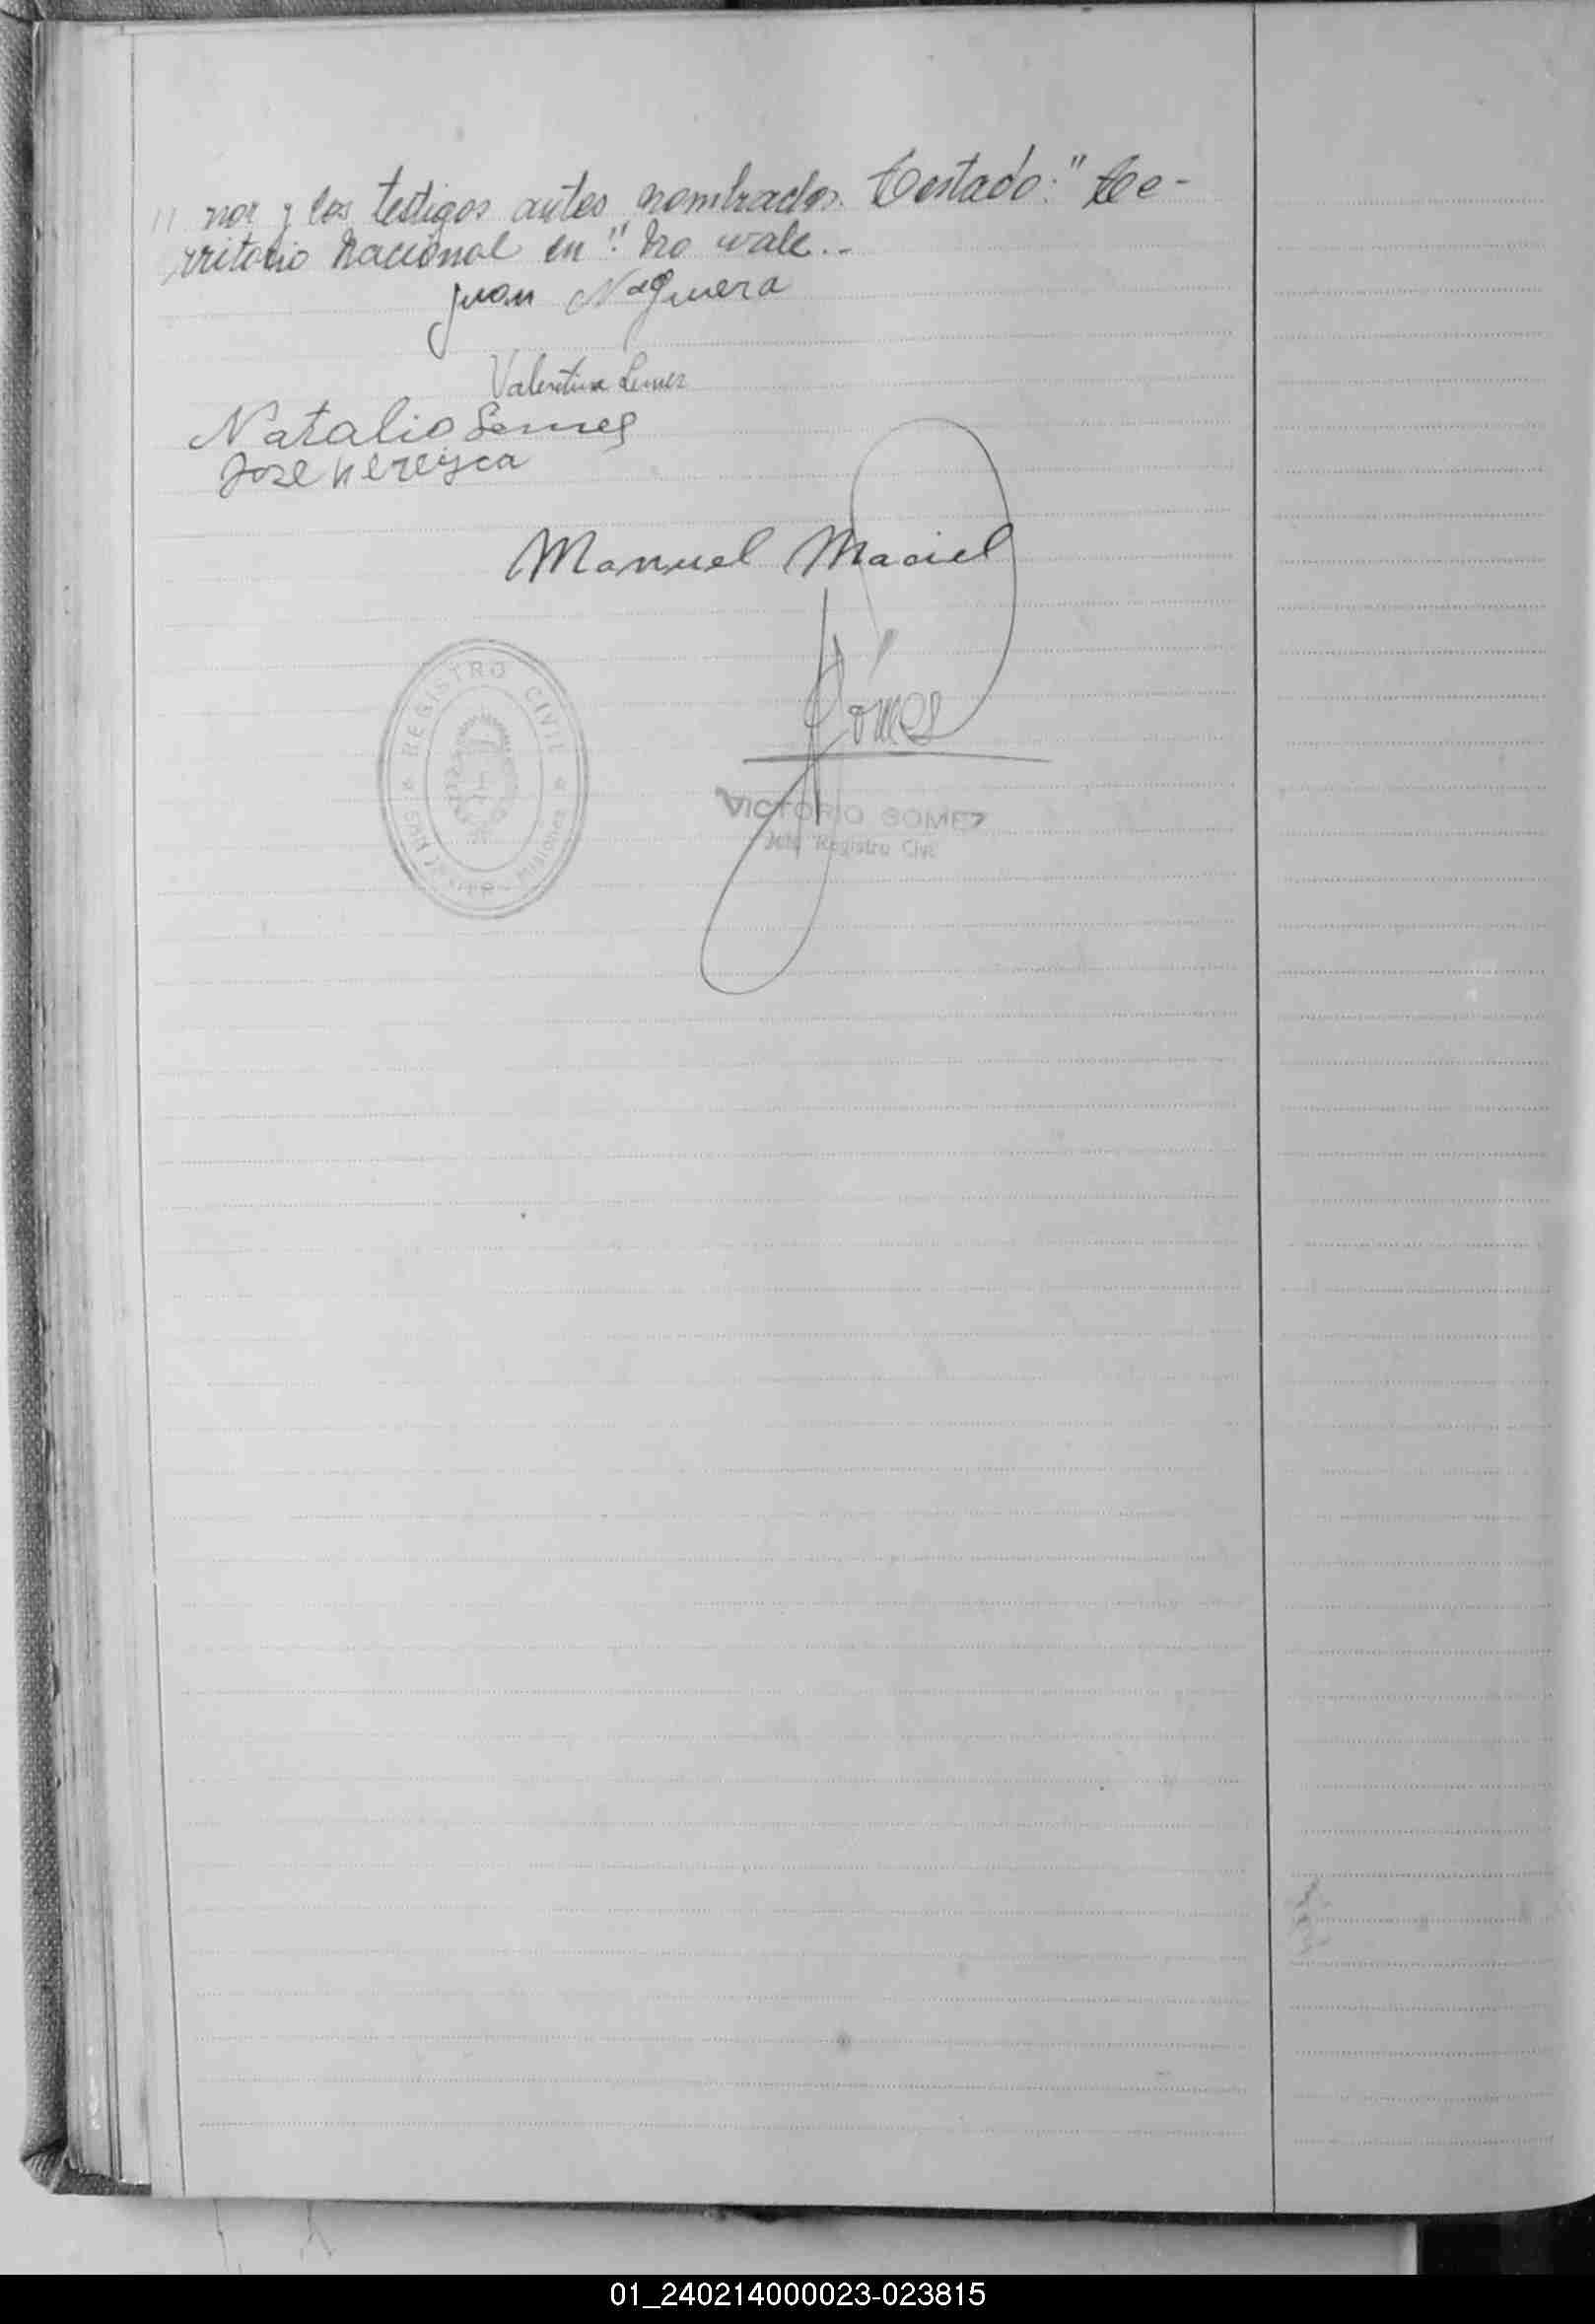 // nor y los testigos antes nombrados. Testado: "Te-
rritorio Nacional en": no vale.-
Juan Noguera
Valentina Lemes
Natalio Lemes
Jose Nereyca
Manuel Maciel
Gómez
REGISTRO CIVIL
MISIONES
VICTORIO GOMEZ
Jefe Registro Civil
01_240214000023-023815